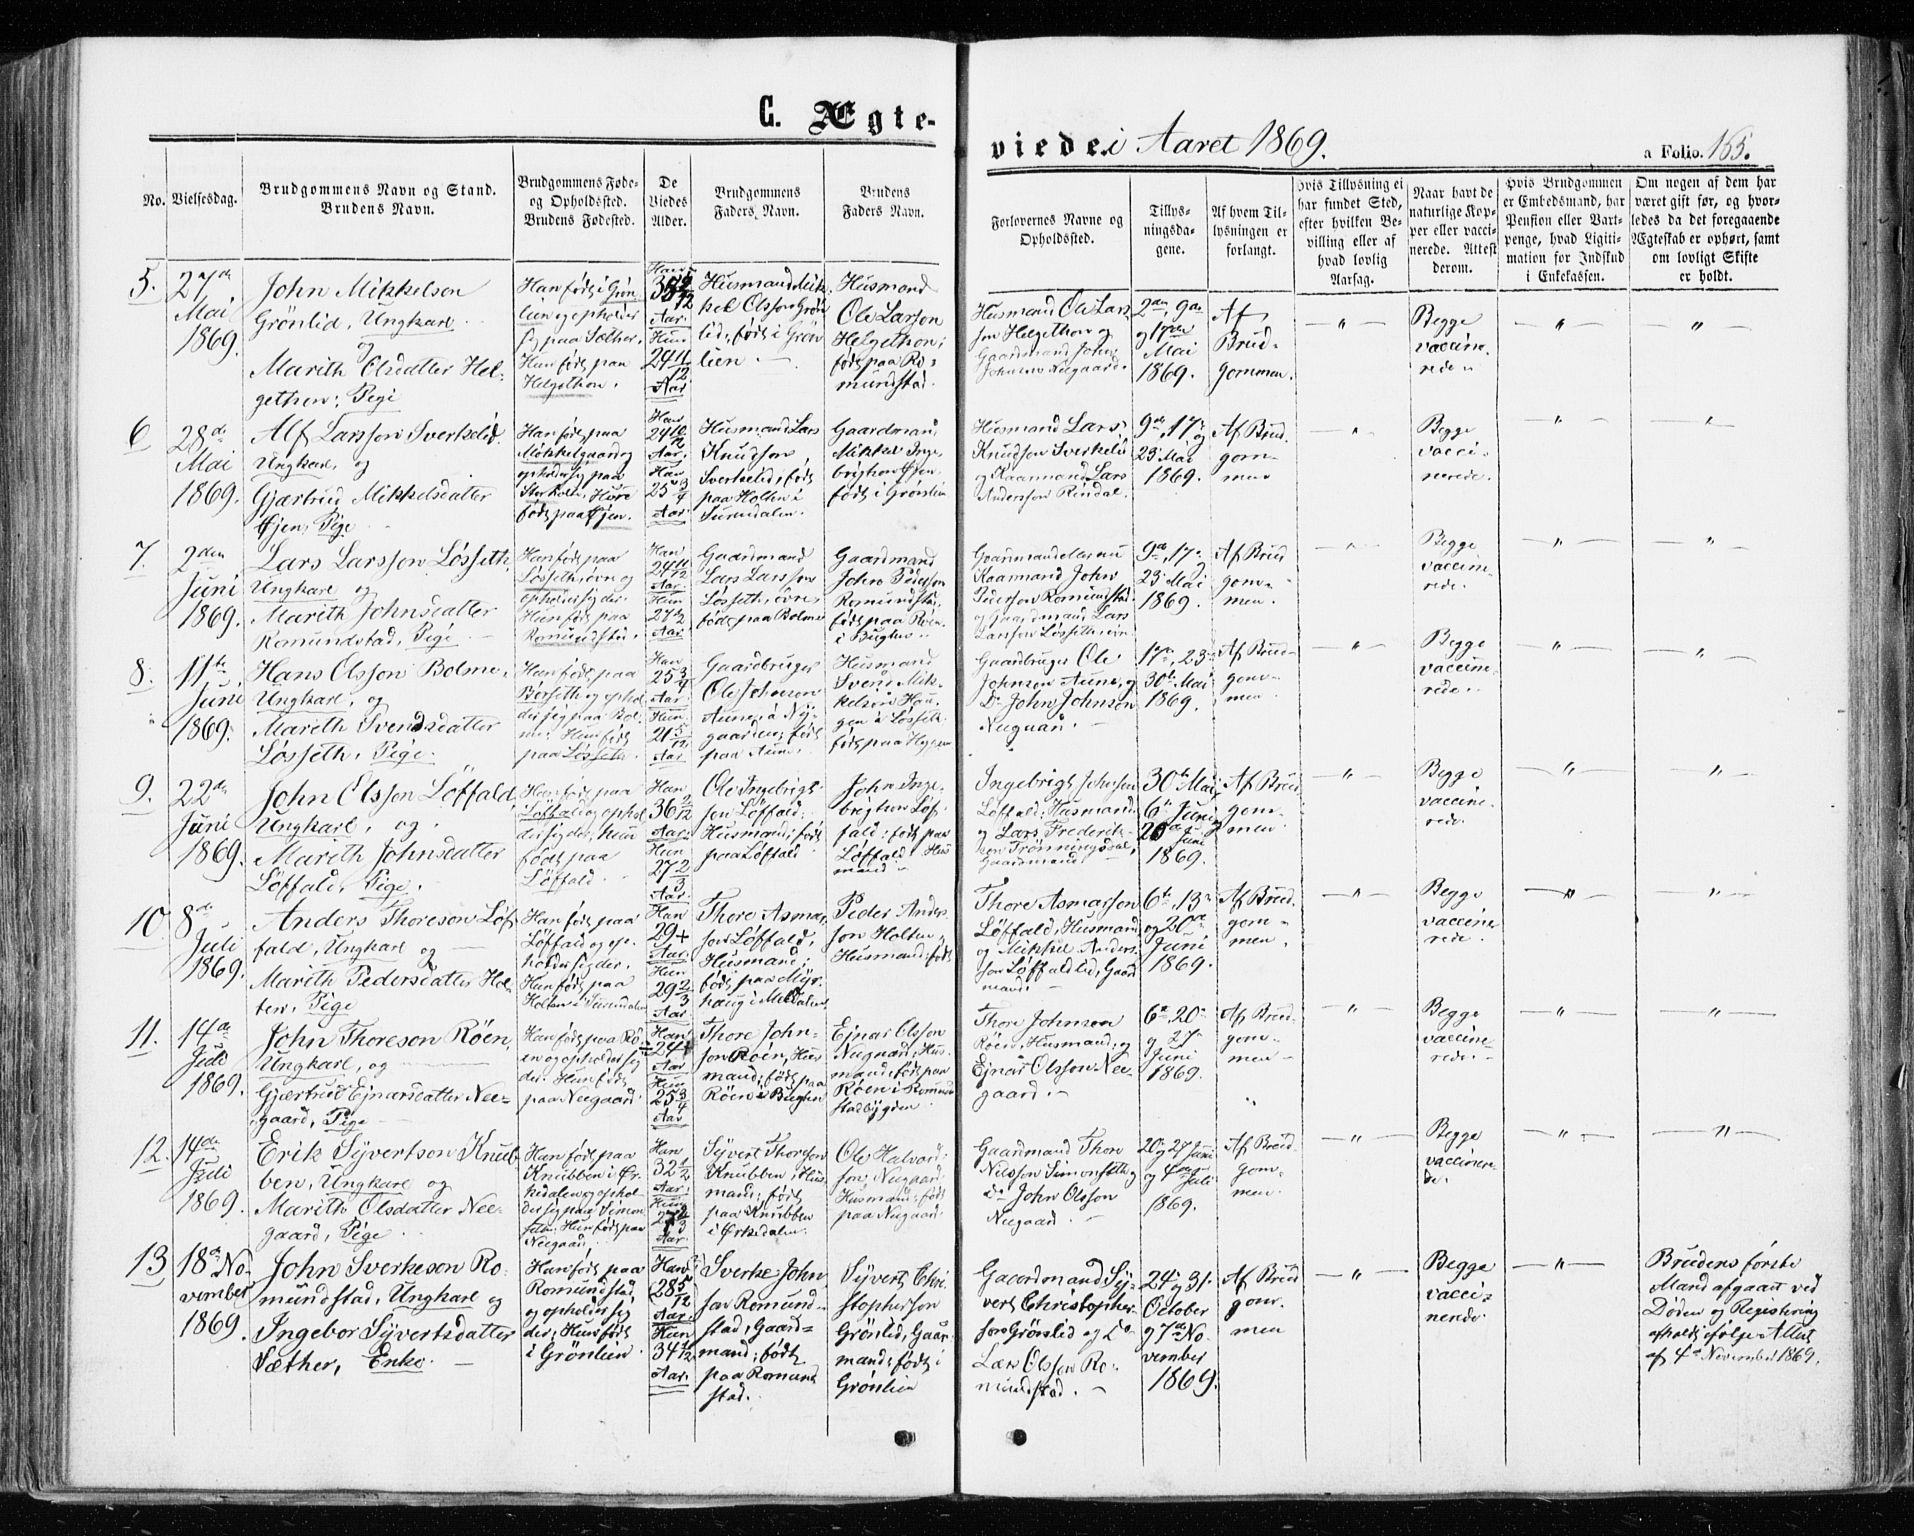 C. Ægte-
viede i Aaret 1869.
a Folio. 165.
No.
Vielsesdag.
Brudgommens Navn og Stand.
Brudens Navn.
Brudgommens Føde-
og Opholdssted.
Brudens Fødested.
De
Viedes
Alder.
Brudgommens
Faders Navn.
Brudens
Faders Navn.
Forlovernes Navne og
Opholdssted.
Tillys-
ningsda-
gene.
Af hvem Til-
lysningen er
forlangt.
Hvis Tillysning ei
har fundet Sted,
efter hvilken Be-
villing eller af
hvad lovlig
Aarsag.
Naar havt de
naturlige Kop-
per eller vacci-
nerede. Attest
derom.
Hvis Brudgommen
er Embedsmand, har
Pension eller Vart-
penge, hvad Ligiti-
mation for Indskud
i Enkekassen.
Om nogen af dem har
været gift før, og hvor-
ledes da det foregaaende
Ægteskab er ophørt, samt
om lovligt Skifte
er holdt.
5.
27de
Mai
1869.
John Mikkelsen
Grönlid, Ungkarl
og
Marith Olsdatter Hel-
gethon; Pige
Han födt i Grön-
lien og opholder
sig paa Sæther.
Hun födt paa
Helgethon.
Han
Aar
Hun
24 11/12
Aar
Husmand Mik-
kel Olsson Grön-
lid, födt i Grön-
lien. —
Husmand
Ole Larsson
Helgethon;
födt paa Ro-
mundstad.
Husmand Ole Lars-
son Helgethon og
Gaardmand John
Johnsen Neegaard.
2den, 9de
og 17de
Mai
1869.
Af
Brud-
gommen.
— " —
Begge
vaccine-
rede.
— " —
— " —
6
28de
Mai
1869.
Alf Larsson Sverkelid.
Ungkarl, og
Gjærtrud Mikkelsdatter
Øjen, Pige
Han födt paa
Mikkelgaard og
opholder sig paa
Storholt. Hun
födt paa Øjen.
Han
24 10/12
Aar.
25 3/4
Aar.
Husmand Lars
Knudson
Sverkelid, födt
paa Holten i
Surendalen.
Gaardmand
Mikkel Inge-
brigtson Øjen
födt i Grönlien
Husmand Lars
Knudson Sverkelid
og Kaarmand Lars
Anderssøn Rindal.
9de, 17de og
23 Mai
1869.
Af Brud-
gom-
men
"
Begge
vacci-
nerede.
— " —
— " —
7.
2den
Juni
1869.
Lars Larsson Lösseth,
Ungkarl og
Marith Johnsdatter
Romundstad, Pige. —
Han födt paa
Lösseth, övre og
opholder sig der.
Hun födt paa
Romundstad.
Han
24 11/12
Aar.
Hun
Aar.
Gaardmand
Lars Larsson
Lösseth, övre,
födt paa Bolme
Gaardmand
John Pederson
Romundstad,
födt paa Röen
i Bugten
Kaarmand John
Pederson Romundstad
og Gaardmand Lars
Larsson Lösseth, övre
9de, 17de
23 Mai
1869.
Af Brud
gom-
men.
— " —
Begge
vaccine-
rede.
— " —
— " —
8.
11te
Juni
1869.
Hans Olsson Bolme,
Ungkarl, og
Marith Svendsdatter
Lösseth, Pige.
Han födt paa
Börseth og ophol-
der sig paa Bol-
me. Hun födt
paa Lösseth.
Han
25 3/4
Aar.
Hun
21 5/12
Aar
Gaardbruger
Ole Johnsen
Aune, i Ny-
gaarden; födt
paa Aune.
Husmand
Svend Mik-
kelson Hau-
gen i Lösseth
födt paa Heggem
Gaardbruger Ole
Johnsen Aune, og
Do John Johnsen
Neegaard. —
17de, 23de
30te Mai
1869.
Af Brud-
gom-
men
— " —
Begge
vaccine-
rede.
— " —
— " —
9.
22de
Juni
1869.
John Olsson Löffald,
Ungkarl, og
Marith Johnsdatter
Löffald, Pige.
Han födt paa
Löffald og ophol-
der sig der; Hun
födt paa
Löffald.
Han
36 2/12
Aar.
Hun
27 2/3
Aar.
Ole Ingebrigt-
son Löffald;
Husmand; födt
paa Löffald
John Inge-
brigtson Löf-
fald; födt paa
Löffald. Hus
mand
Ingebrigt Johnson
Löffald; Husmand;
og Lars Frederik-
sen Trönningsdal,
Gaardmand.
30te Mai,
6te Juni
20de Juni
1869.
Af Brud
gom-
men
— " —
Begge
vaccine-
rede.
— " —
— " —
10.
8de
Juli
1869.
Anders Thoreson Löf-
fald, Ungkarl og —
Marith Pedersdatter Hol-
ten, Pige
Han födt paa
Löffald og op-
holder sig der.
Hun födt paa
Holten i Surendalen
Han
29 +
Aar.
Hun
29 2/3
Aar.
Thore Asmar-
son Löffald;
Husmand;
födt paa Myr-
haug i Meldalen
Peder Anders-
son Holten,
Husmand; födt
Thore Asmarson
Löffald, Husmand
og Mikkel Anders-
son Löffaldlid, Gaard
mand.
6te, 13de
og 20de
Juni
1869.
Af Brud-
gom-
men
— " —
Begge
vaccine-
rede.
— " —
— " —
11.
14de
Juli
1869.
John Thoreson Röen,
Ungkarl, og —
Gjærtrud Ejnarsdatter Nee-
gaard, Pige —
Han födt paa Rö-
en og opholder sig
der. Hun födt
paa Neegaard.
Han
24 +
Aar
Hun
25 3/4
Aar.
Thore John-
son Röen, Hus
mand; födt paa
Röen i Bugten
Ejnar Olsson
Neegaard, Hus-
mand; födt paa
Röen i Romund-
stadbygden
Thore Johnsen
Röen, Husmand, og
Ejnar Olsson Nee-
gaard. —
6te, 20de
og 27de
Juni
1869.
Af Brud-
gom-
men —
— " —
Begge
vaccine-
rede.
— " —
— " —
12.
14de
Juli
1869.
Erik Syvertson Knub-
ben, Ungkarl og
Marith Olsdatter Nee-
gaard, Pige
Han födt paa
Knubben i Or-
kedalen og ophol-
der sig paa Simon-
seth. Hun födt paa
Neegaard.
Han
32 1/2
Aar.
Hun
Aar.
Syvert Thorson
Knubben, Hus
mand; födt
paa Knubben
i Ørkedalen.
Ole Halvord-
son, Neegaard
Husmand; födt
paa Neegaard.
Gaardmand Thore
Nilsson Simonseth og
Do John Olsson
Neegaard. —
20 og 27 Juni
og 4de
Juli
1869.
Af Brud-
gom-
men.
— " —
Begge
vaccinere-
de.
— " —
— " —
13
18de No-
vember
1869.
John Sverkeson Ro-
mundstad, Ungkarl og
Ingebor Syvertsdatter
Sæther, Enke. —
Han födt paa
Romundstad
og opholder sig
der; Hun födt
i Grönlien
Han
28 5/12
Aar.
Hun
Aar.
Sverke John
son Romund-
stad, Gaard-
mand; födt
paa Romund
stad.
Syvert Chri-
stopherson
Grönlid, Gaar-
mand; födt i
Grönlien
Gaardmand Sy-
vert Christopher-
son Grönlid og Do
Lars Olsson Ro-
mundstad. —
24 og 31
October
og 7de No-
vember
1869.
Af Brud
gom-
men
— " —
Begge
vacci-
nerede
— " —
Brudens förste
Mand afgaaet ved
Döden og Registrering
afholdt ifölge Attest
af 4de November 1869.